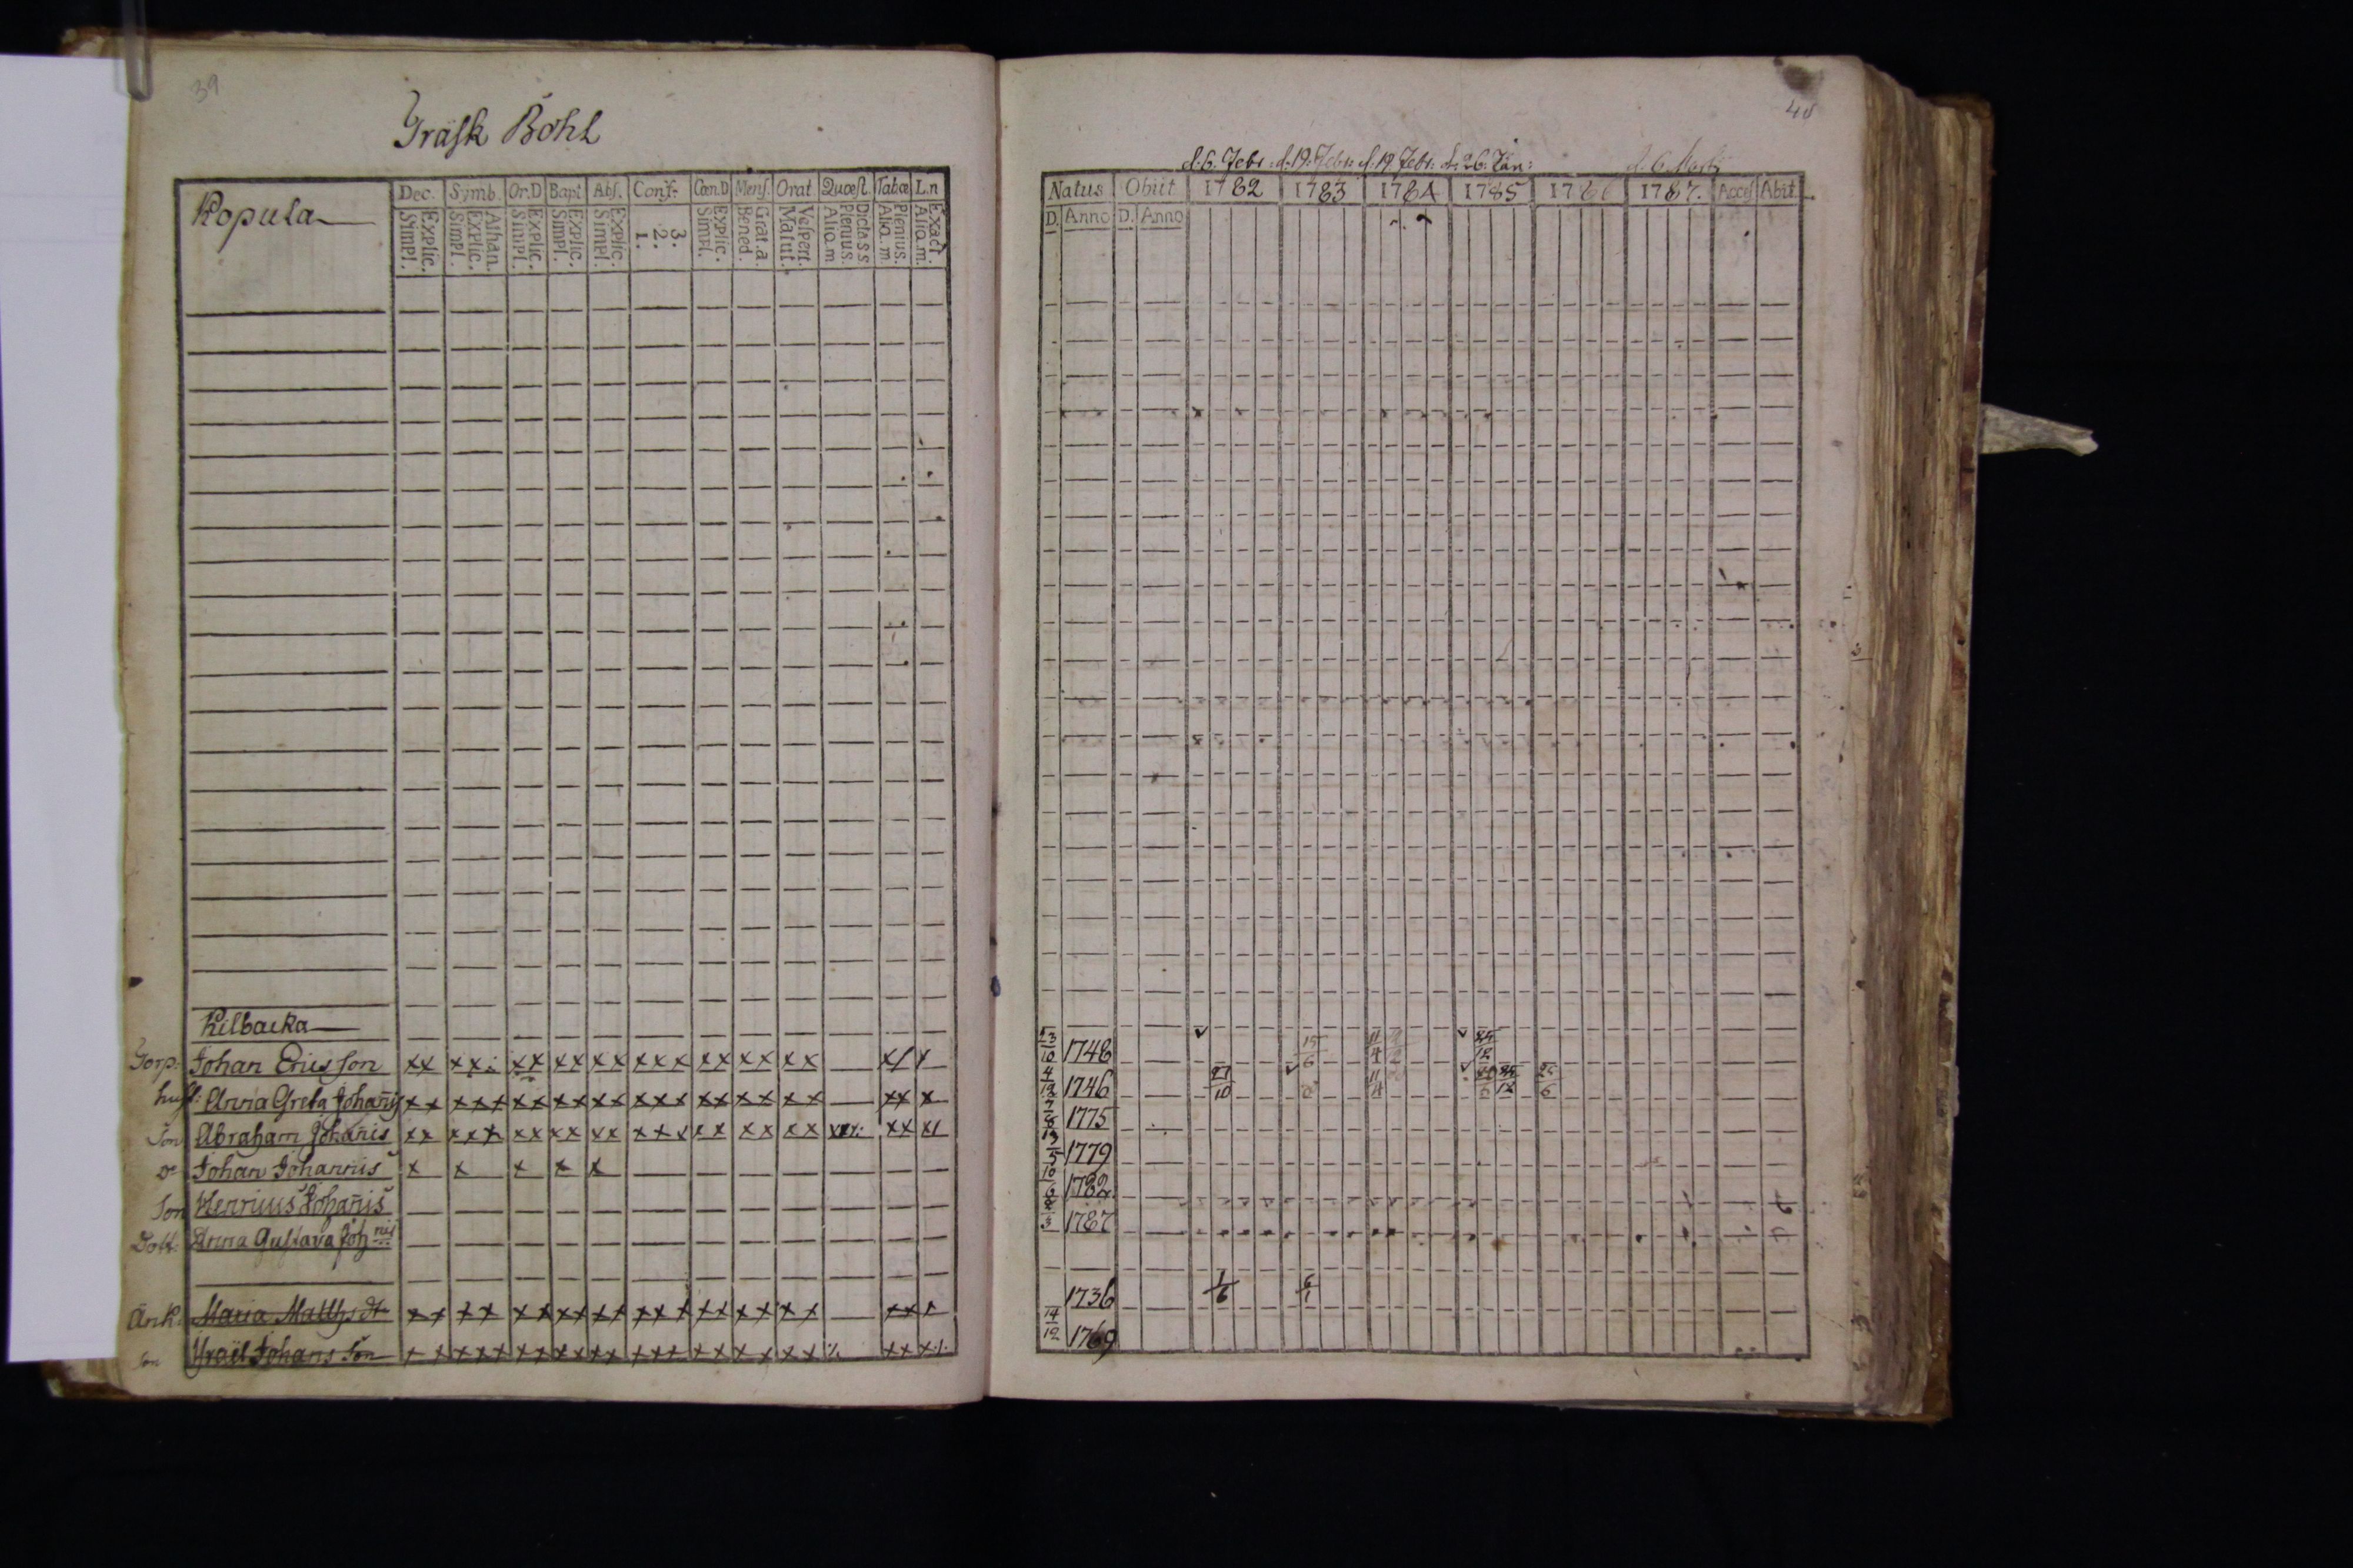 39
Träsk Böhl
Kopula
Dec. Symb. Or.D Bapt Abs. Conf: Cœn.D Mens. Orat Quœst. Tabœ L.n
Explic. Simpl. Athan. Explic. Simpl. Explic. Simpl. Explic. Simpl. Explic. Simpl. 3. 2. 1. Explic. Simpl. Grat.a Bened. Vespert. Matut. Dicta s s. Plenius. Aliq.m Plenius. Aliq.m Exact. Aliq.m.
Kilbacka
Johan Ericsson xx xx xx xx xx xxx xx xx xx
hust: Anna Greta Johañis xx xxx xx xx xx xxx xx xx xx xx x
Son Abraham Johañis xx xxx xx xx xx xxx xx xx xx xx
Do Johan Johannis x x x x x
Son Henricus Johañis
Dott: Anna Gustava Joh nis
Änk: Maria Matths dr xx xx xx xx xx xxx xx xx xx
Son Israël Johans Son xx xxx xx xx xx xxx xx xx xx
40
d. 6. Febr: d. 19. Febr: d. 19 Febr: d. 26. Jan: d. 6 Martii
Natus Obiit 1782 1783 1784 1785 1786 1787. Acces Abiit.
D. Anno D. Anno
13/10 1748 15/6
4/12 1746 27/10
1775
1779
1782
1787
1736 1/6 6/1
14/12 1769